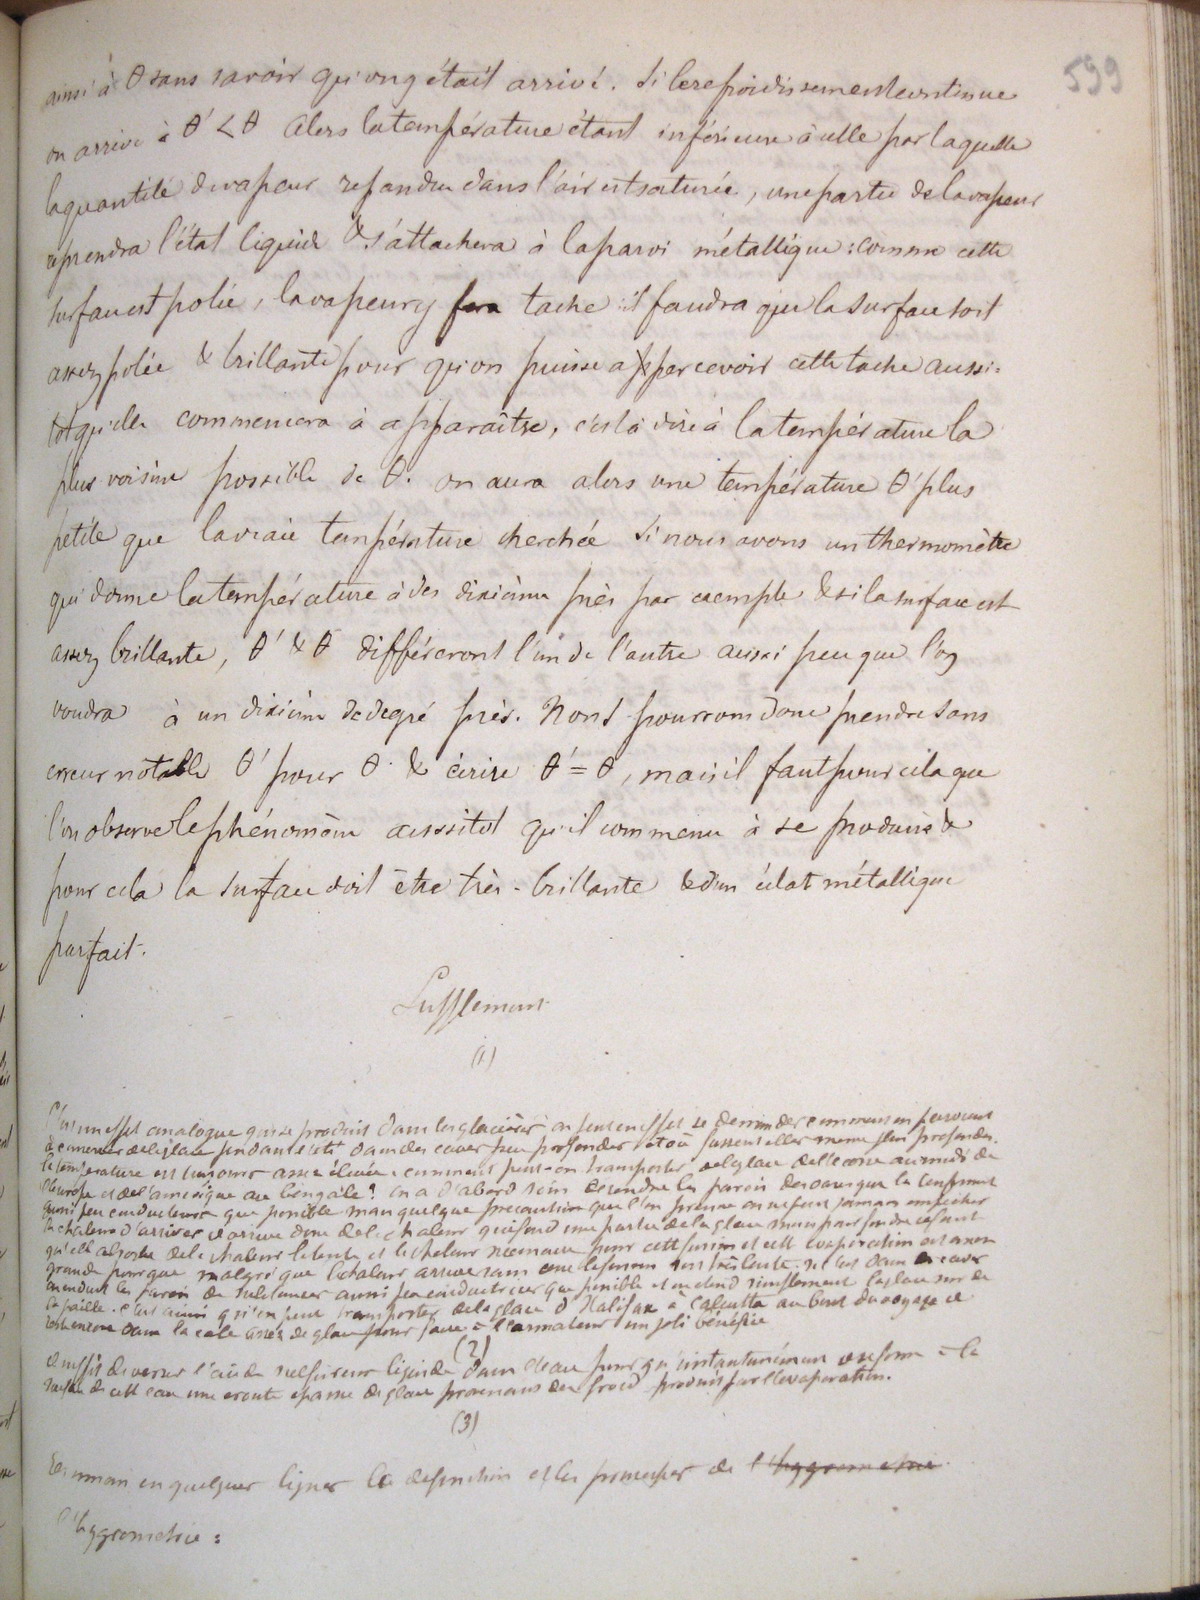 599
ainsi à θ sans savoir qu'on y était arrivé. Si le refroidissement continue
on arrive à θ' < θ Alors la température étant inférieure à celle par laquelle
la quantité de vapeur répandue dans l'air est saturée, une partie de la vapeur
reprendra l'état liquide & s'attachera à la paroi métallique : comme cette
surface est polie, la vapeur y fera tache : il faudra que la surface soit
assez polie & brillante pour qu'on puisse appercevoir cette tache aussi-
tot qu'elle commencera à apparaître, c'est à dire à la température la
plus voisine possible de θ. on aura alors une température θ' plus
petite que la vraie température cherchée Si nous avons un thermomètre
qui donne la température à des dixième près par exemple & si la surface est
assez brillante, θ' & θ différeront l'un de l'autre aussi peu que l'on
voudra à un dixième de degré près. Nous pourrons donc prendre sans
erreur notable θ' pour θ & écrire θ' = θ, mais il faut pour cela que
l'on observe le phénomène aussitot qu'il commence à se produire &
pour cela la surface doit être très-brillante & d'un éclat métallique
parfait.
Supplement
(1)
C'est un effet analogue qui se produit dans les glacières on peut en effet se demander comment on parvient
à conserver de la glace pendant l'été dans des caves peu profondes et où fussent elles meme plus profondes
la température est toujours assez élevée. comment peut-on transporter de la glace de l'ecosse au midi de
l'europe et de l'amérique au bengale ? on a d'abord soin de rendre les parois des vases qui la renferment
aussi peu conducteurs que possible mais quelque precaution que l'on prenne on ne peut jamais empêcher
la chaleur d'arriver il arrive donc de la chaleur qui fond une partie de la glace mais pour fondre il faut
qu'elle absorbe de la chaleur latente et la chaleur necessaire pour cette fusion et cette evaporation est assez
grande pour que malgré que la chaleur arrive sans cesse la fusion soit très lente. dans la cave
en enduit les parois de substances aussi peu conductrices que possible et on etend simplement la glace sur de
la paille. c'est ainsi qu'on peut transporter de la glace d'Halifax à Calcutta au bout du voyage il
reste encore dans la cale assez de glace pour faire à l'armateur un joli bénéfice
(2)
il suffit de verser l'acide sulfureux liquide dans l'eau pour qu'instantanément on forme à la
surface de cette eau une croute epaisse de glace provenant du froid produit par l'evaporation.
(3)
en quelques lignes la definition et les principes de l'hygrometrie
l'hygrometrie :